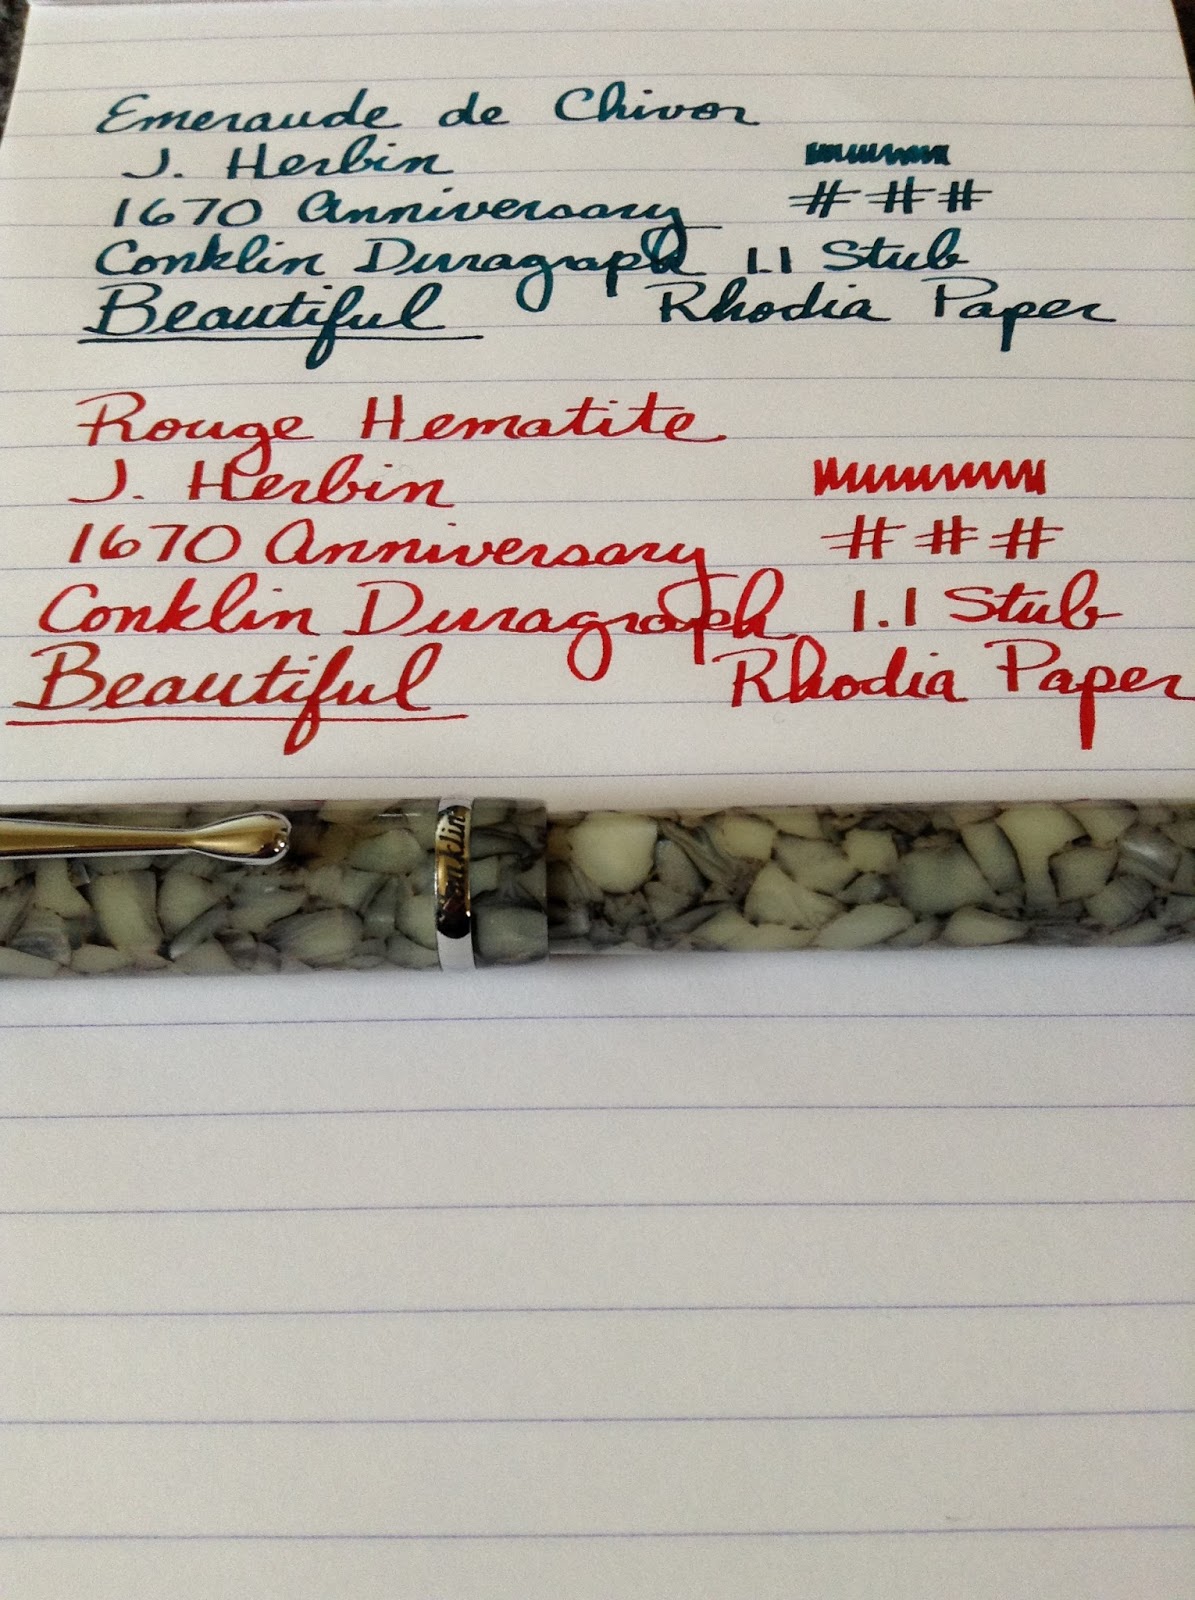 Emeraude de Chivor
J. Herbin
1670 Anniversary # # #
Conklin Duragraph 1.1 Stub
Beautiful Rhodia Paper
Rouge Hematite
J. Herbin
1670 Anniversary # # #
Conklin Duragraph 1.1 Stub
Beautiful Rhodia Paper
Conklin